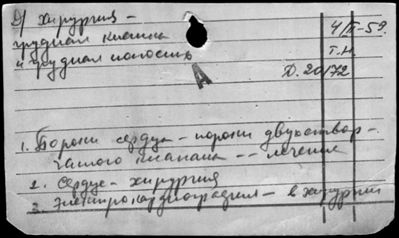 D/ хирургия –
грудная клетка
и грудная полость
4/II-59.
Т.Н.
Д. 20172
А
1. Пороки сердца – пороки двухствор-
чатого клапана -- лечение
2. Сердце – хирургия
3. Электрокардиография – в хирургии